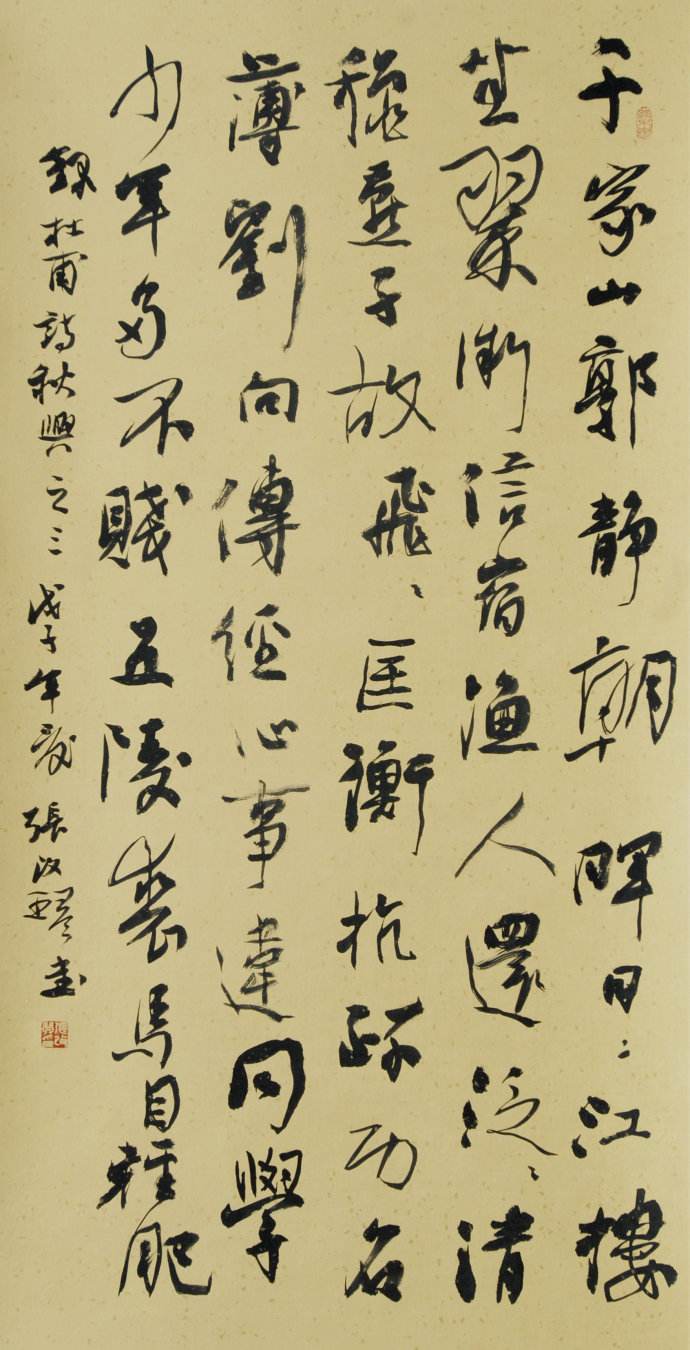 千家山郭静朝暉日々江樓
坐翠微信宿漁人還泛々清
秋燕子故飛々匡衡抗疏功名
薄劉向傳經心事違同學
少年多不賤五陵裘馬自輕肥
錄杜甫詩秋興之三戊子年夏張改琴書